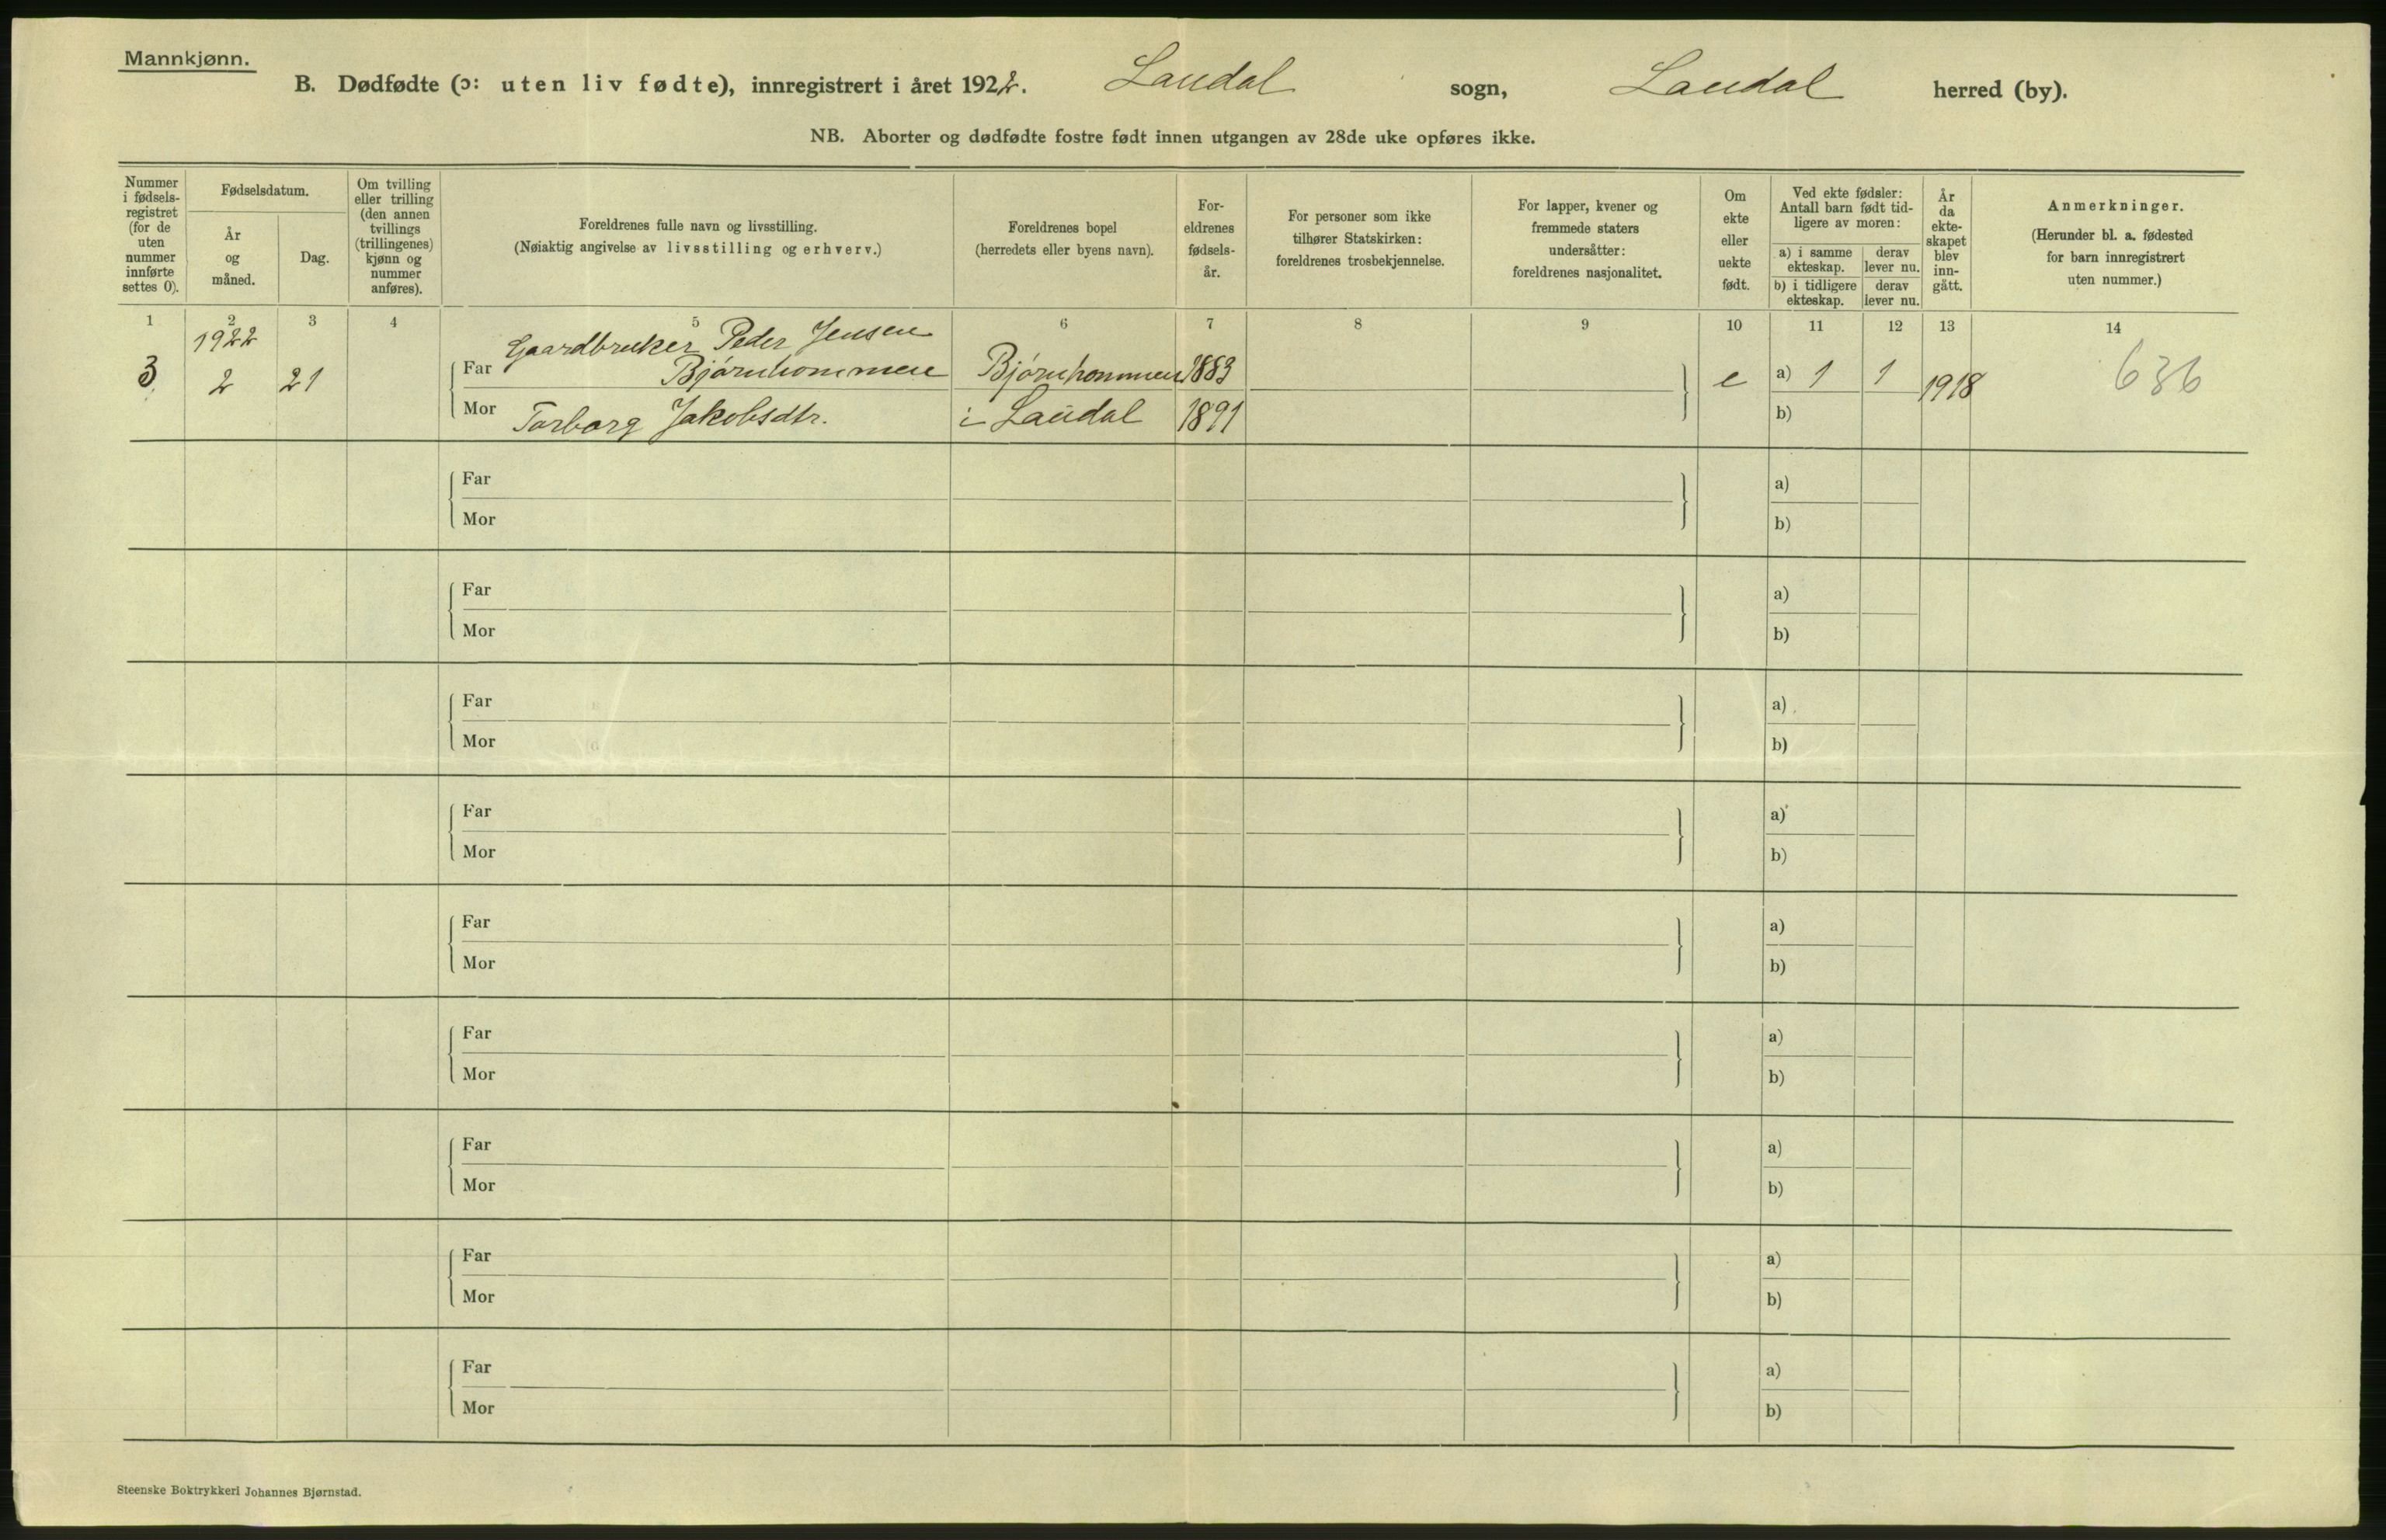 Mannkjønn.
B. Dødfødte (ɔ: uten liv fødte), innregistrert i året 1922. Laudal sogn, Laudal herred (by).
NB. Aborter og dødfødte fostre født innen utgangen av 28de uke opføres ikke.
Nummer i fødsels-registret (for de uten nummer innførte settes 0).
Fødselsdatum.
År og måned.
Dag.
Om tvilling eller trilling (den annen tvillings (trillingenes) kjønn og nummer anføres).
Foreldrenes fulle navn og livsstilling.
(Nøiaktig angivelse av livsstilling og erhverv.)
Foreldrenes bopel
(herredets eller byens navn).
For-eldrenes fødsels-år.
For personer som ikke tilhører Statskirken: foreldrenes trosbekjennelse.
For lapper, kvener og fremmede staters undersåtter: foreldrenes nasjonalitet.
Om ekte eller uekte født.
Ved ekte fødsler: Antall barn født tid-ligere av moren:
a) i samme ekteskap.
derav lever nu.
b) i tidligere ekteskap.
derav lever nu.
År da ekte-skapet blev inn-gått.
Anmerkninger.
(Herunder bl. a. fødested for barn innregistrert uten nummer.)
1 2 3 4 5 6 7 8 9 10 11 12 13 14
1922 Gaardbruker Peder Jensen
3 2 21 Far Bjørnhommen Bjørnhommen 1883 e a) 1 1 1918 636
Mor Torborg Jakobsdtr. i Laudal 1891 b)
Far a)
Mor b)
Far a)
Mor b)
Far a)
Mor b)
Far a)
Mor b)
Far a)
Mor b)
Far a)
Mor b)
Far a)
Mor b)
Far a)
Mor b)
Far a)
Mor b)
Steenske Boktrykkeri Johannes Bjørnstad.